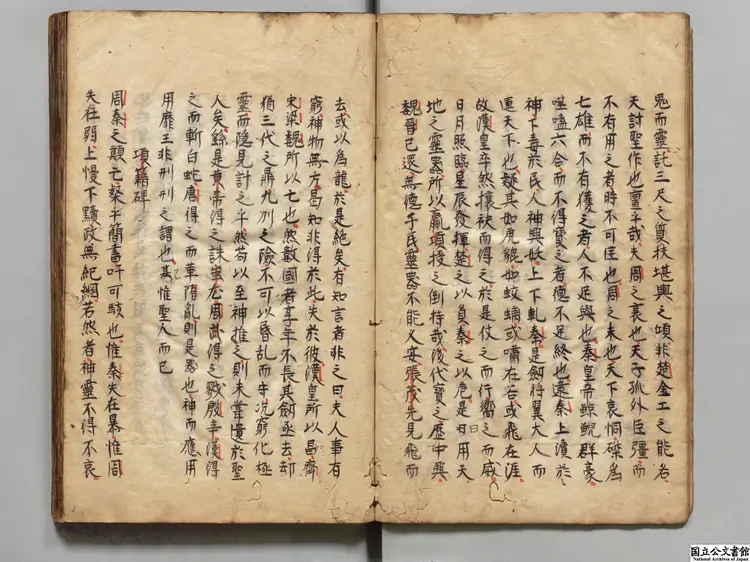 鬼而靈託三尺之質扶堪輿之頃非楚金工之能名
天討聖作也亶乎哉夫周之衰也天子孤外臣彊而
不有用之者時不可匡也周之末也天下哀恫磔為
七雄而不有獲之者人不足與也秦皇帝鯨鯢群豪
噬嗑六合而不得寶之者德不足終也逮秦上瀆於
神下毒於民人神興妖上下軋秦是劍將翼大人而
運天下也疑其如虎貌如蛟蜵或嘯在石或飛在涯
故漢皇卒然攘袂而得之於是仗之而行嚮之而威
日月照臨星辰發揮楚之以負秦之以危是日用天
地之靈器所以羸項授之倒持哉後代寶之歷中興
魏晉已還無德于民靈器不能久安張茂先見飛而
去或以為龍於是絕矣有知言者非之曰夫人事有
窮神物無方曷知非得於此失於彼漢皇所以昌齊
宋梁魏所以亡也然數國者享年不長其劍亟去却
猶三代之鼎九州之險不可以昏亂而守況窮化極
靈而隱見計之乎然苟以至神推之則未嘗遺於聖
人矣繇是黃帝得之誅蚩尤周武得之戮殷辛漢得
之而斬白蛇唐得之而革隋亂則是器也神而應用
用靡王非刑刑之謂也其惟聖人而已
項籍碑
周秦之顛亡椉乎簡書吁可駭也惟秦失在暴惟周
失在弱上慢下黷政無紀綱若然者神靈不得不哀
国立公文書館
National Archives of Japan